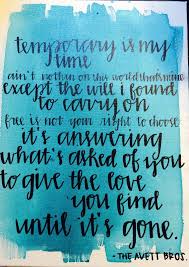 temporary is my
time
ain't nothin on this world that's mine
except the will i found
to carry on
free is not your right to choose
it's answering
what's asked of you
to give the love
you find
until it's gone.
- THE AVETT BROS.